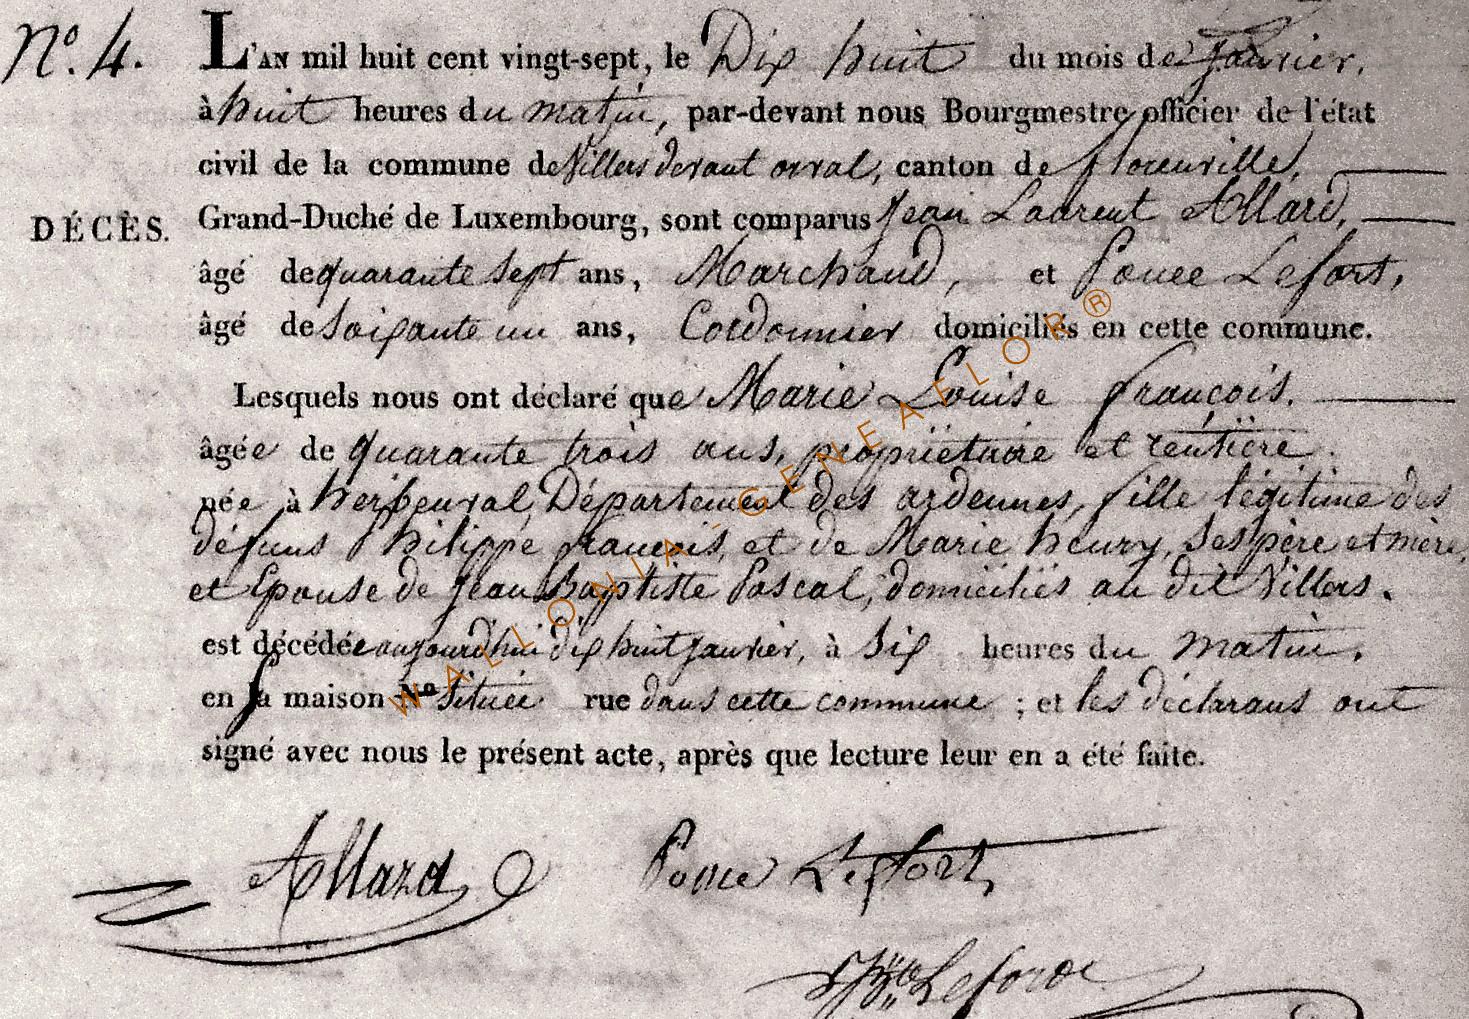 N.º 4. L'AN mil huit cent vingt-sept, le Dix huit du mois de Janvier,
à huit heures du matin, par-devant nous Bourgmestre officier de l'état
civil de la commune de Villers devant orval, canton de florenville,
DÉCÈS. Grand-Duché de Luxembourg, sont comparus Jean Laurent Allard,
âgé de quarante sept ans, Marchand, et Ponce Lefort,
âgé de soixante un ans, Cordonnier domiciliés en cette commune.
Lesquels nous ont déclaré que Marie Louise françois.
âgée de quarante trois ans, propriétaire et rentière.
née à herbeuval, Département des ardennes, fille légitime des
défuns Philippe françois, et de Marie henry, ses père et mère,
et Epouse de Jean Baptiste Pascal, domiciliés au dit Villers.
est décédée aujourdhui dix huit janvier, à six heures du matin,
en sa maison Nº située rue dans cette commune ; et les déclarans ont
signé avec nous le présent acte, après que lecture leur en a été faite.
WALLONIA - GENEALOR®
Allard Ponce Lefort